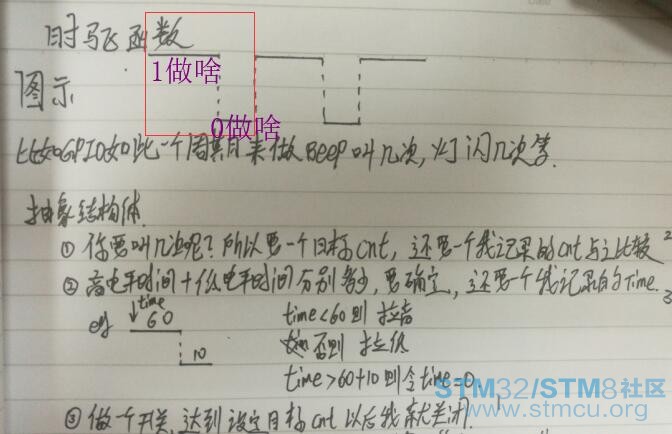 时驱函数
1做啥
图示
0做啥
比如GPIO如此一个周期来做BEEP叫几次,灯闪几次等.
抽象结构体.
① 你要叫几次呢?所以要一个目标cnt,还要一个我记录的cnt与之比较 2
② 高电平时间+低电平时间分别多少,要确定,还要一个我记录的time. 3
time
eg 60 time<60则 拉高
10 否则 拉低
time>60+10则令time=0
STM32/STM8社区
www.stmcu.org
③ 做一个开关,达到设定目标cnt以后我就关闭. 1